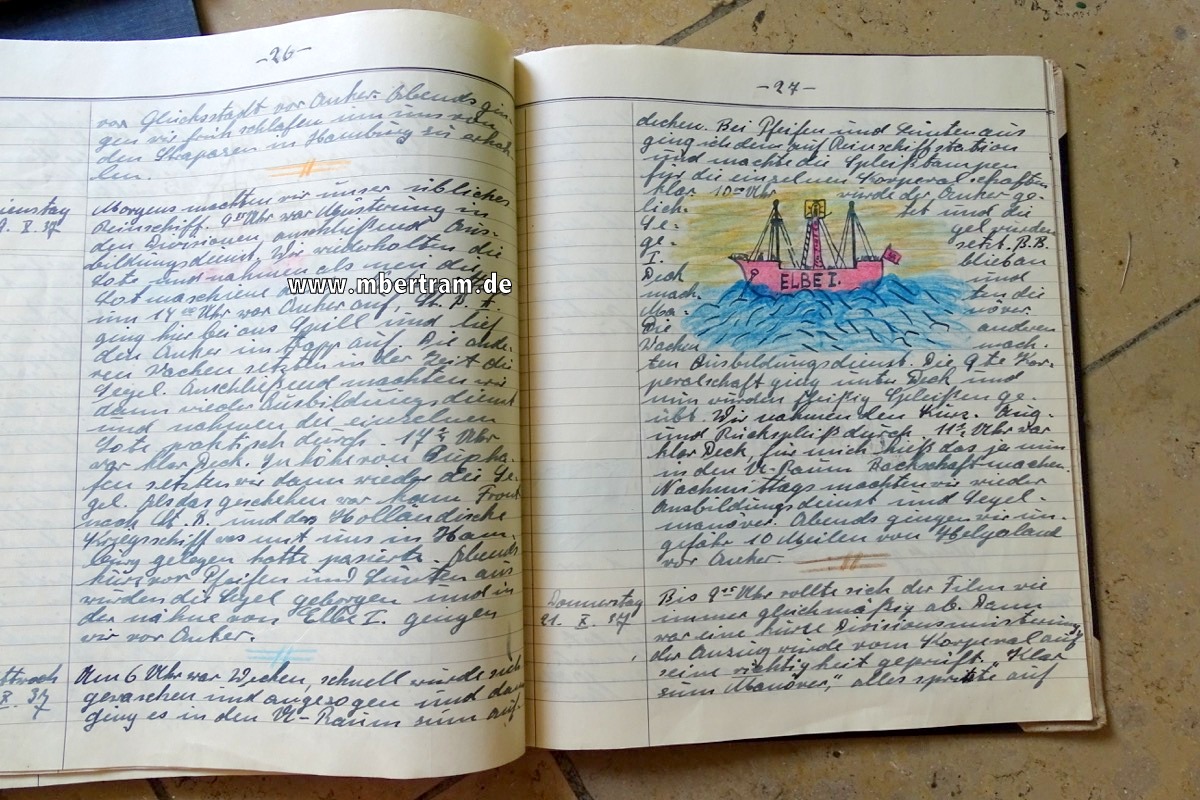 -26-
von Glückstadt vor Anker. Abends gin-
gen wir früh schlafen um uns von
den Strapazen in Hamburg zu erhol-
len.
ienstag
9. X. 37
Morgens machten wir unser übliches
Reinschiff. 9 Uhr war Musterung in
den Divisionen, anschließend Aus-
bildungsdienst. Wir wiederholten die
Lote und nahmen als neu die
Lotmaschine
um 14 Uhr war Anker auf, St. B. A.
ging hier bei ans Spill und lief
den Anker im Trapp auf. Die ande-
ren Wachen setzten in der Zeit die
Segel. Anschließend machten wir
dann wieder Ausbildungsdienst
und nahmen die einzelnen
Lote praktisch durch. 17 Uhr
war klar Deck. In höhe von
setzten wir dann wieder die Se-
gel. Als das geschehen war kam Front
nach St. B. und das Holländische
Kriegsschiff was mit uns in Ham-
burg gelegen hatte pasierte. Abends
kurz vor Pfeifen und Lunten aus
wurden die Segel geborgen und in
der nähe von Elbe I. gingen
wir vor Anker.
ttwoch
X. 37
Um 6 Uhr war Wecken, schnell wurde sich
gewaschen und angezogen und dann
ging es in den VI-Raum zum auf-
-27-
decken. Bei Pfeifen und Lunten aus
ging ich dann auf Reinschiffstation
und machte die Spleißtampen
für die einzelnen Korporalschaften
klar. 10 Uhr wurde der Anker ge-
lich- tet und die
Se- gel wurden
ge- setzt. B.B.
I. blieb an
Deck und
mach- ten die
Ma- növer.
Die anderen
Wachen mach-
ten Ausbildungsdienst. Die 9te Kor-
peralschaft ging unter Deck und
nun wurden fleißig Spleißen ge-
übt. Wir nahmen den Kurz- Aug-
und Rückspleiß durch. 11 Uhr war
klar Deck, für mich hieß das ja nun
in den VI-Raum Backschaft machen.
Nachmittags machten wir wieder
Ausbildungsdienst und Segel-
manöver. Abends gingen wir un-
gefähr 10 Meilen von Helgoland
vor Anker.
Donnerstag
21. X. 37
Bis 9 Uhr rollte sich der Film wie
immer gleichmäßig ab. Dann
war eine kurze Divisionsmusterung
der Anzug wurde vom Korperal auf
seine richtigkeit geprüft. "Klar
zum Manöver," alles spritzte auf
ELBE I.
www.mbertram.de